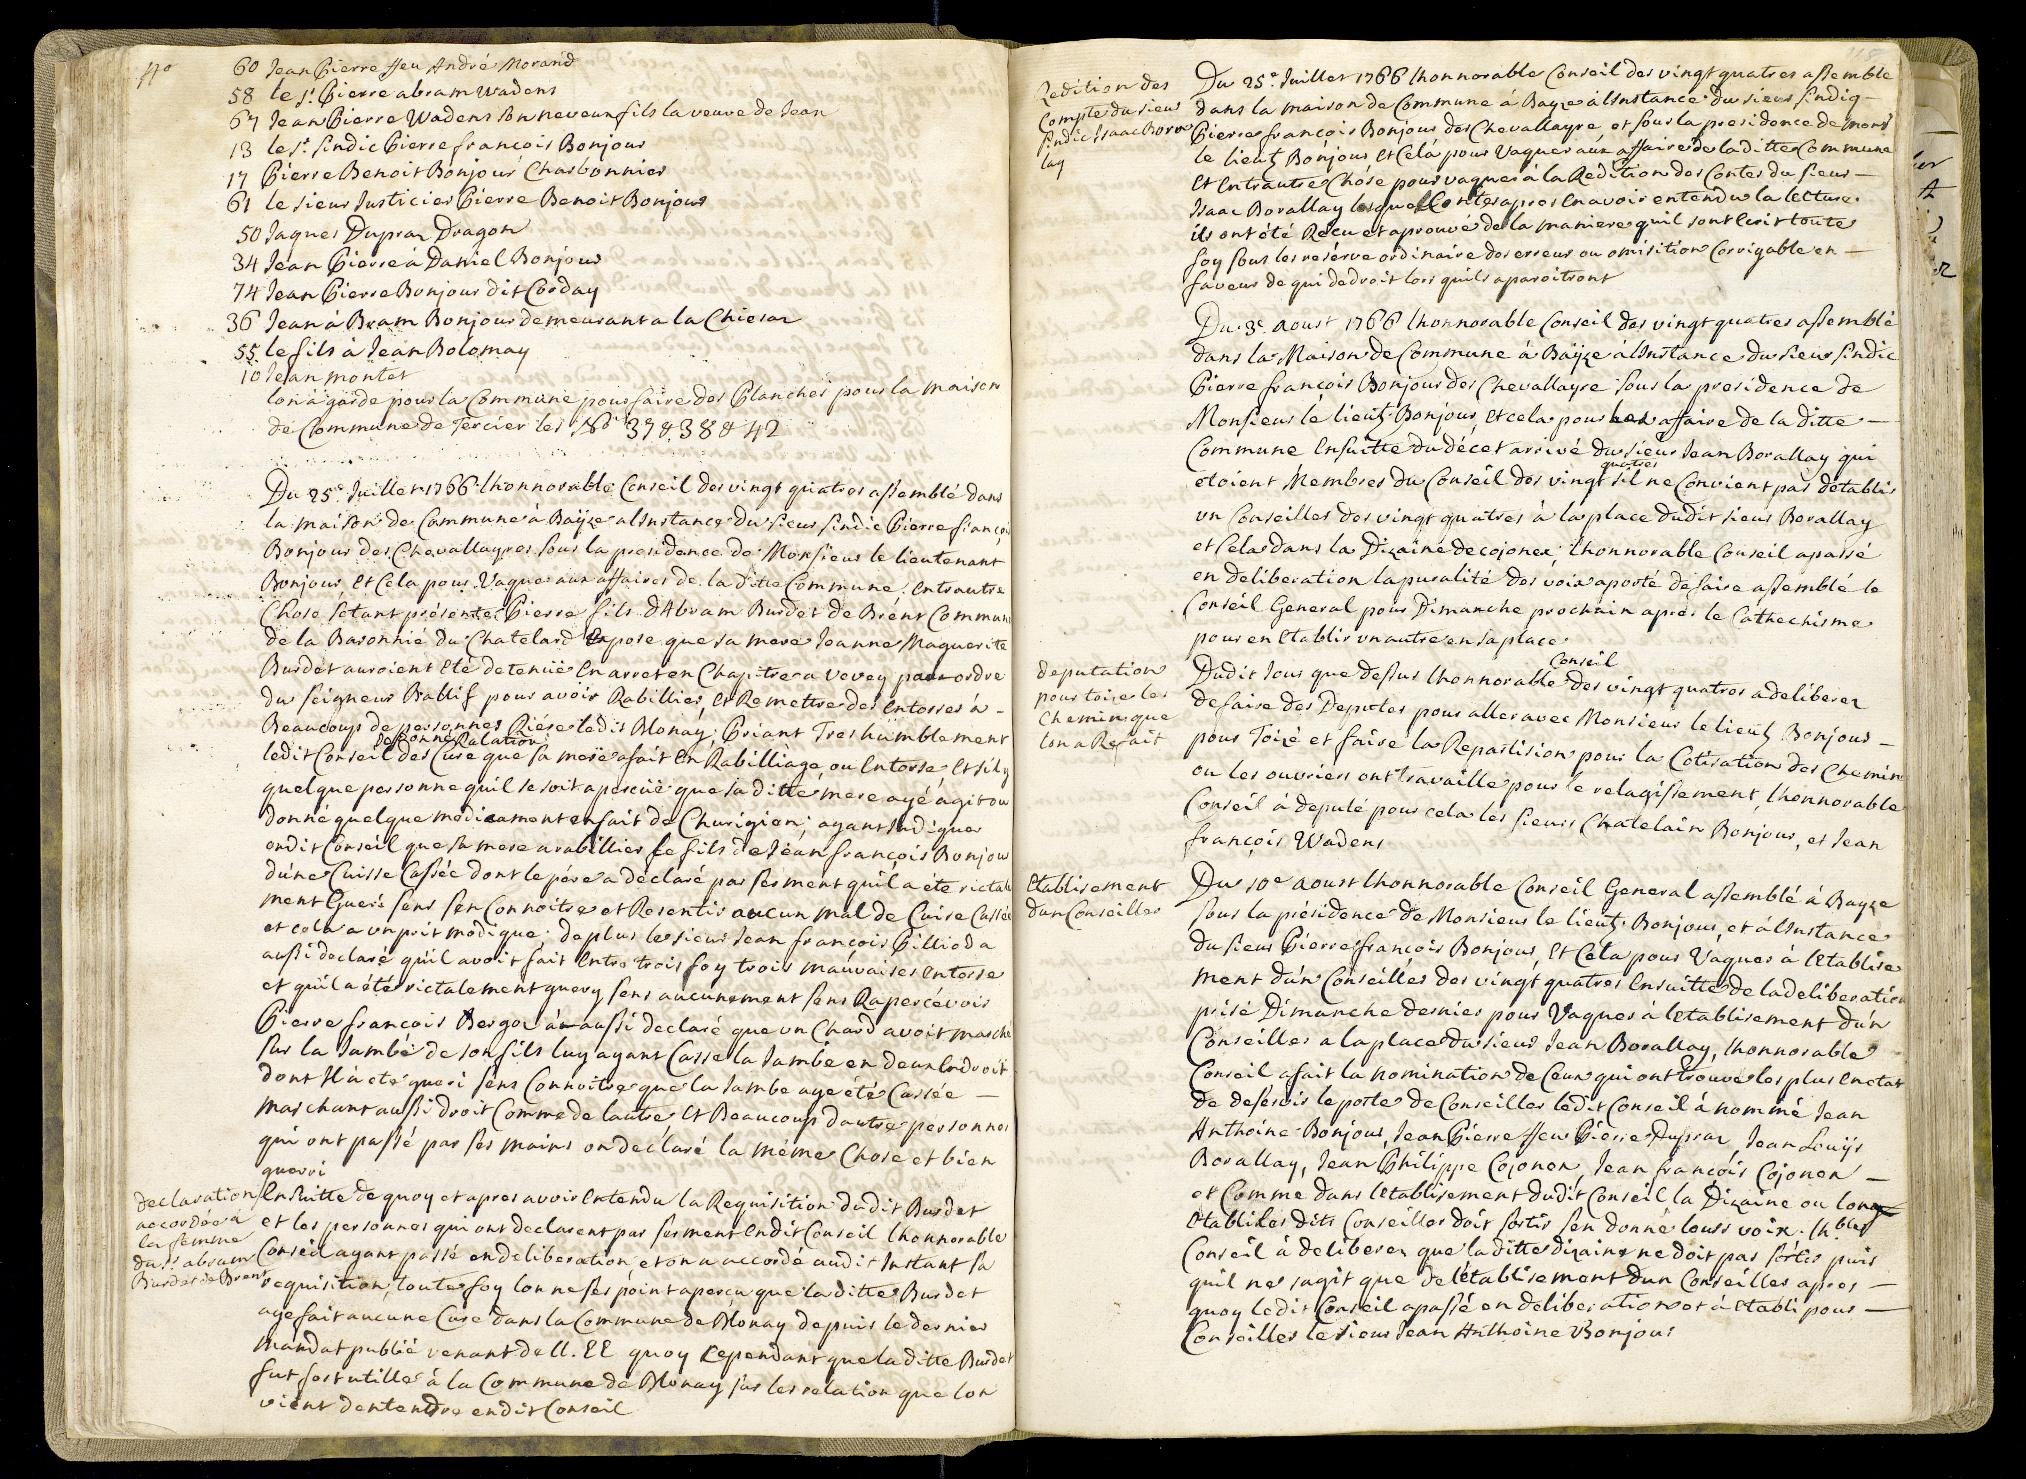 N°
60 Jean Pierre ffeu André Morand
58 le Sr. Pierre abram Wadens
67 Jean Pierre Wadens Son neveu un fils la veuve de Jean
13 le Sr. Sindic Pierre francois Bonjour
17 Pierre Benoit Bonjour Charbonnier
61 le Sieur Justicier Pierre Benoit Bonjour
50 Jaques Dupraz Dragon
34 Jean Pierre à Daniel Bonjour
74 Jean Pierre Bonjour dit Corday
36 Jean à Bram Bonjour demeurant a la Chiesaz
55 le fils à Jean Bolomay
10 Jean montet
lon à garde pour la Commune pour faire des Planches pour la maison
de Commune de Tercier les No 37 & 38 & 42
Du 25e. Juillet 1766 lhonnorable Conseil des vingt quatres assemblé dans
la maison de Commune à Bayze a lInstance du Sieur Sindic Pierre françois
Bonjour des Chevallayres Sous la presidence de Monsieur le lieutenant
Bonjour, et Cela pour Vaquer aux affaires de la ditte Commune, Entrautre
Chose Setant présenter Pierre fils dAbram Burdet de Brent Commune
de la Baronnie du Chatelard Expose que sa mere Jeanne Maguerite
Burdet auroient Eté detenüe En arret en Chapitre a Vevey par ordre
du Seigneur Ballif pour avoir Rabillier, et Remettre des Entorses à -
Beaucoup de personnes Riére ledit Blonay; Priant Tres humblement
ledit Conseil de donné Relation des Cure que Sa mere a fait En Rabilliage, ou Entorse, et Sil y
quelque personne quil Se Soit apercüe que Sa ditte mere ayé agit ou
donné quelque medicament en fait de Churigien; ayant Indiquer
en dit Conseil que Sa mere a rabillier le fils de Jean françois Bonjour
dúne Cuisse Cassée dont le pére a déclaré par Serment quil a été victale
ment Gueri Sens Sen Connoitre et Resentir aucun mal de Cuise Cassée
et cela a un prit modique: de plus le Sieur Jean françois Pilliod a
aussi declaré quil avoit fait Entre trois foy trois mauvaises Entorse
et quil a été victalement guery Sens aucunement Sens Rapercévoir
Pierre francois Bergoz à aussi declaré que un Chard avoit marche
Sur la Jambé de Son fils luy ayant Casse la Jambe en deux Endroit
dont Il à eté gueri Sens Connoitre que la Jambe aye été Cassée —
marchant aussi droit Comme de lautre, et Beaucoup dautre personnes
qui ont passé par Ses mains on declaré la méme Chose et bien
guerri
declaration
accordée à
la femme
du Sr. abram
Burdet de Brent
Ensuitte de quoy et apres avoir Entendu la Requisition du dit Burdet
et les personnes qui ont declarent par Serment En dit Conseil lhonnorable
Conseil ayant passé en deliberation, et on a accordé au dit Instant Sa
requisition, toute foy lon ne Ses point aperçu que la ditte Burdet
aye fait aucune Cure dans la Commune de Blonay depuis le dernier
mandat publié venant de ll. EE quoy Cependant que la ditte Burdet
fut fort utille à la Commune de Blonay Sur les relation que lon
vient dentendre en dit Conseil
Redition des
Compte du Sieur
Sindic Isaac Borva
lay
Du 25e. Juillet 1766 lhonnorable Conseil des vingt quatres assemble
dans la maison de Commune à Bayze à lInstance du Sieur Sindiq —
Pierre françois Bonjour des Chevallayre, et Sous la presidence de monsr
le lieut. Bonjour et Cela pour Vaquer aux affaire de la ditte Commune
et Entrautre Chóse pour vaquer à la Redition des Contes du Sieur —
Isaac Borallay lesquel Contes apres En avoir entendu la lecture
ils ont été Reçu et aprouvé de la maniere quil Sont Ecrit toute
foy Sous les resérve ordinaire des erreur ou omisition Corrigable en —
faveur de qui de droit lors quils aparoitront
Du 3e. aoust 1766 lhonnorable Conseil des vingt quatres assemblé
dans la Maison de Commune à Baÿze à lInstance du Sieur Sindic
Pierre françois Bonjour des Chevallayre Sous la presidence de
Monsieur le lieut. Bonjour, et cela pour les affaire de la ditte —
Commune Ensuitte du décet arrivé du Sieur Jean Borallay qui
etoient Membres du Conseil des vingt quatres Sil ne Convient pas détablir
un Conseiller des vingt quatres à la place dudit Sieur Borallay
et Cela dans la Dizaine de cojonex; lhonnorable Conseil a passé
en deliberation la puralité des voix a porté de faire assemblé le
Conseil General pour Dimanche prochain aprés le Cathechisme
pour en Etablir un autre en Sa place
deputation
pour toise les
Chemin que
lon a Refait
Dudit Jour que dessus lhonnorable Conseil des vingt quatres a deliberer
de faire des Deputes pour aller avec Monsieur le lieut. Bonjour —
pour Toizé et faire la Repartision pour la Cotisation des Chemin
ou les ouvriers ont travaille pour le relagissement, lhonnorable
Conseil à deputé pour cela les Sieurs Chatelain Bonjour, et Jean
françois Wadens
Etablisement
dun Conseiller
Du 10e aoust lhonnorable Conseil General assemblé à Bayze
Sous la présidence de Monsieur le lieut. Bonjour, et à lInstance
du Sieur Pierre françois Bonjour, et Cela pour Vaquer à lEtablise
ment dún Conseiller des vingt quatres Ensuitte de la deliberation
prisé Dimanche dernier pour Vaquer à letablisement dún
Conseiller a la place du Sieur Jean Borallay, lhonnorable
Conseil a fait la nomination de Ceux qui ont trouve les plus En etat
de desérvir le poste de Conseiller ledit Conseil à nommé Jean
Anthoine Bonjour, Jean Pierre ffeu Pierre Dupraz, Jean Louÿs
Borallay, Jean Philippe Cojonex, Jean françois Cojonex —
et Comme dans lEtablisement dudit Conseil la Dizaine ou lon
Etabli les dits Conseiller doit Sortir Sen donné leurs voix. lh.ble
Conseil à deliberer que la ditte dizaine ne doit pas Sórtir puis
quil ne Sagit que de létablisement dun Conseiller apres —
quoy ledit Conseil a passé en deliberation et à Etabli pour —
Conseiller le Sieur Jean Anthoine Bonjour